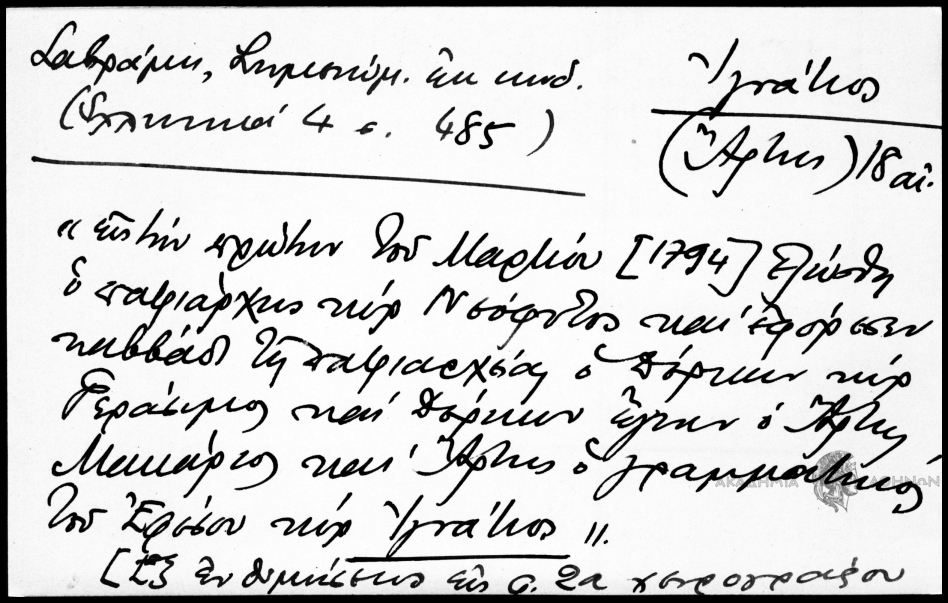 Σαβράμη, Σημειώμ. ἐκ κωδ.
(Ἑλληνικά 4 σ. 485)
Ἰγνάτιος
(Ἄρτης) 18 αἰ.
"εἰς τὴν πρώτην τοῦ Μαρτίου [1794] ἐξώσθη
ὁ πατριάρχης κύρ Νεόφυτος καί ἐφόρεσεν
καββάδι τῆς πατριαρχείας ὁ Δέρκων κύρ
Γεράσιμος καί Δέρκων ἔγινεν ὁ Ἄρτης
Μακάριος καί Ἄρτης ὁ γραμματικός
τοῦ Ἐφέσου κύρ Ἰγνάτιος".
[Ἐξ ἐνθυμήσεως εἰς φ. 2α χειρογράφου
ΑΚΑΔΗΜΙΑ ΑΘΗΝΩΝ